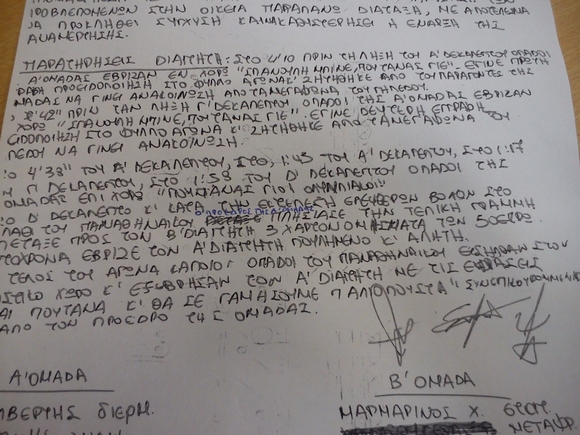 ΠΡΟΒΛΕΠΟΜΕΝΩΝ ΣΤΗΝ ΟΙΚΕΙΑ ΠΑΡΑΠΑΝΩ ΔΙΑΤΑΞΗ, ΜΕ ΑΠΟΤΕΛΕΣΜΑ
ΝΑ ΠΡΟΚΛΗΘΕΙ ΣΥΓΧΥΣΗ ΚΑΙ ΝΑ ΚΑΘΥΣΤΕΡΗΣΕΙ Η ΕΝΑΡΞΗ ΤΗΣ
ΑΝΑΜΕΤΡΗΣΗΣ.
ΠΑΡΑΤΗΡΗΣΕΙΣ ΔΙΑΙΤΗΤΗ: ΣΤΟ 4'10 ΠΡΙΝ ΤΗ ΛΗΞΗ ΤΟΥ Α' ΔΕΚΑΛΕΠΤΟΥ ΟΠΑΔΟΙ
Α' ΟΜΑΔΑΣ ΕΒΡΙΖΑΝ ΕΝ ΧΟΡΩ "ΣΠΑΝΟΥΛΗ ΜΠΙΝΕ, ΠΟΥΤΑΝΑΣ ΓΙΕ". ΕΓΙΝΕ ΠΡΩΤΗ
ΠΡΟΕΙΔΟΠΟΙΗΣΗ ΣΤΟ ΦΥΛΛΟ ΑΓΩΝΑ Κ' ΖΗΤΗΘΗΚΕ ΑΠΟ ΤΟΥ ΠΑΡΑΓΟΝΤΕΣ ΤΗΣ
ΝΑ ΓΙΝΕΙ ΑΝΑΚΟΙΝΩΣΗ ΑΠΟ ΤΑ ΜΕΓΑΦΩΝΑ ΤΟΥ ΓΗΠΕΔΟΥ.
8'42" ΠΡΙΝ ΤΗΝ ΛΗΞΗ Γ' ΔΕΚΑΛΕΠΤΟΥ, ΟΠΑΔΟΙ ΤΗΣ Α' ΟΜΑΔΑΣ ΕΒΡΙΖΑΝ
ΧΟΡΩ "ΣΠΑΝΟΥΛΗ ΜΠΙΝΕ, ΠΟΥΤΑΝΑΣ ΓΙΕ". ΕΓΙΝΕ ΔΕΥΤΕΡΗ ΕΓΓΡΑΦΗ
ΣΤΟ ΦΥΛΛΟ ΑΓΩΝΑ Κ' ΖΗΤΗΘΗΚΕ ΑΠΟ ΤΑ ΜΕΓΑΦΩΝΑ ΤΟΥ
ΝΑ ΓΙΝΕΙ ΑΝΑΚΟΙΝΩΣΗ.
ΣΤΟ 4'38" ΤΟΥ Α' ΔΕΚΑΛΕΠΤΟΥ, ΣΤΟ 1:43 ΤΟΥ Α' ΔΕΚΑΛΕΠΤΟΥ, ΣΤΟ 1:17
Γ' ΔΕΚΑΛΕΠΤΟΥ, ΣΤΟ 1:58 ΤΟΥ Δ' ΔΕΚΑΛΕΠΤΟΥ ΟΠΑΔΟΙ ΤΗΣ
ΟΜΑΔΑΣ ΕΠΙ ΧΟΡΩ "ΠΟΥΤΑΝΑΣ ΓΙΟΙ ΟΛΥΜΠΙΑΚΟΙ"
Δ' ΔΕΚΑΛΕΠΤΟ Κ' ΚΑΤΑ ΤΗΝ ΕΚΤΕΛΕΣΗ ΕΛΕΥΘΕΡΩΝ ΒΟΛΩΝ ΣΤΟ
ΤΟΥ ΠΑΝΑΘΗΝΑΪΚΟΥ Ο ΠΡΟΕΔΡΟΣ ΤΗΣ Α' ΟΜΑΔΑΣ ΠΛΗΣΙΑΣΕ ΤΗΝ ΤΕΛΙΚΗ ΓΡΑΜΜΗ
ΠΕΤΑΞΕ ΠΡΟΣ ΤΟΝ Β' ΔΙΑΙΤΗΤΗ 3 ΧΑΡΤΟΝΟΜΙΣΜΑΤΑ ΤΩΝ 50ΕΥΡΩ.
ΕΒΡΙΖΕ ΤΟΝ Α' ΔΙΑΙΤΗΤΗ ΠΟΥΛΗΜΕΝΟ Κ' ΑΛΗΤΗ.
ΤΕΛΟΣ ΤΟΥ ΑΓΩΝΑ ΚΑΠΟΙΟΙ ΟΠΑΔΟΙ ΤΟΥ ΠΑΝΑΘΗΝΑΪΚΟΥ ΕΙΣΗΛΘΑΝ ΣΤΟΝ
ΧΩΡΟ Κ' ΕΞΥΒΡΗΣΑΝ ΤΟΝ Α' ΔΙΑΙΤΗΤΗ ΜΕ ΤΙΣ ΕΚΦΡΑΣΕΙΣ
ΠΟΥΤΑΝΑ Κ' ΘΑ ΣΕ ΓΑΜΗΣΟΥΜΕ ΠΑΛΙΟΠΟΥΣΤΑ" ΣΥΝΕΠΙΚΟΥΡΟΥΜΕΝΟΙ
ΑΠΟ ΤΟΝ ΠΡΟΕΔΡΟ ΤΗΣ ΟΜΑΔΑΣ.
Α' ΟΜΑΔΑ
Β' ΟΜΑΔΑ
ΔΙΕΡΜ.
ΜΑΡΜΑΡΙΝΟΣ Χ.